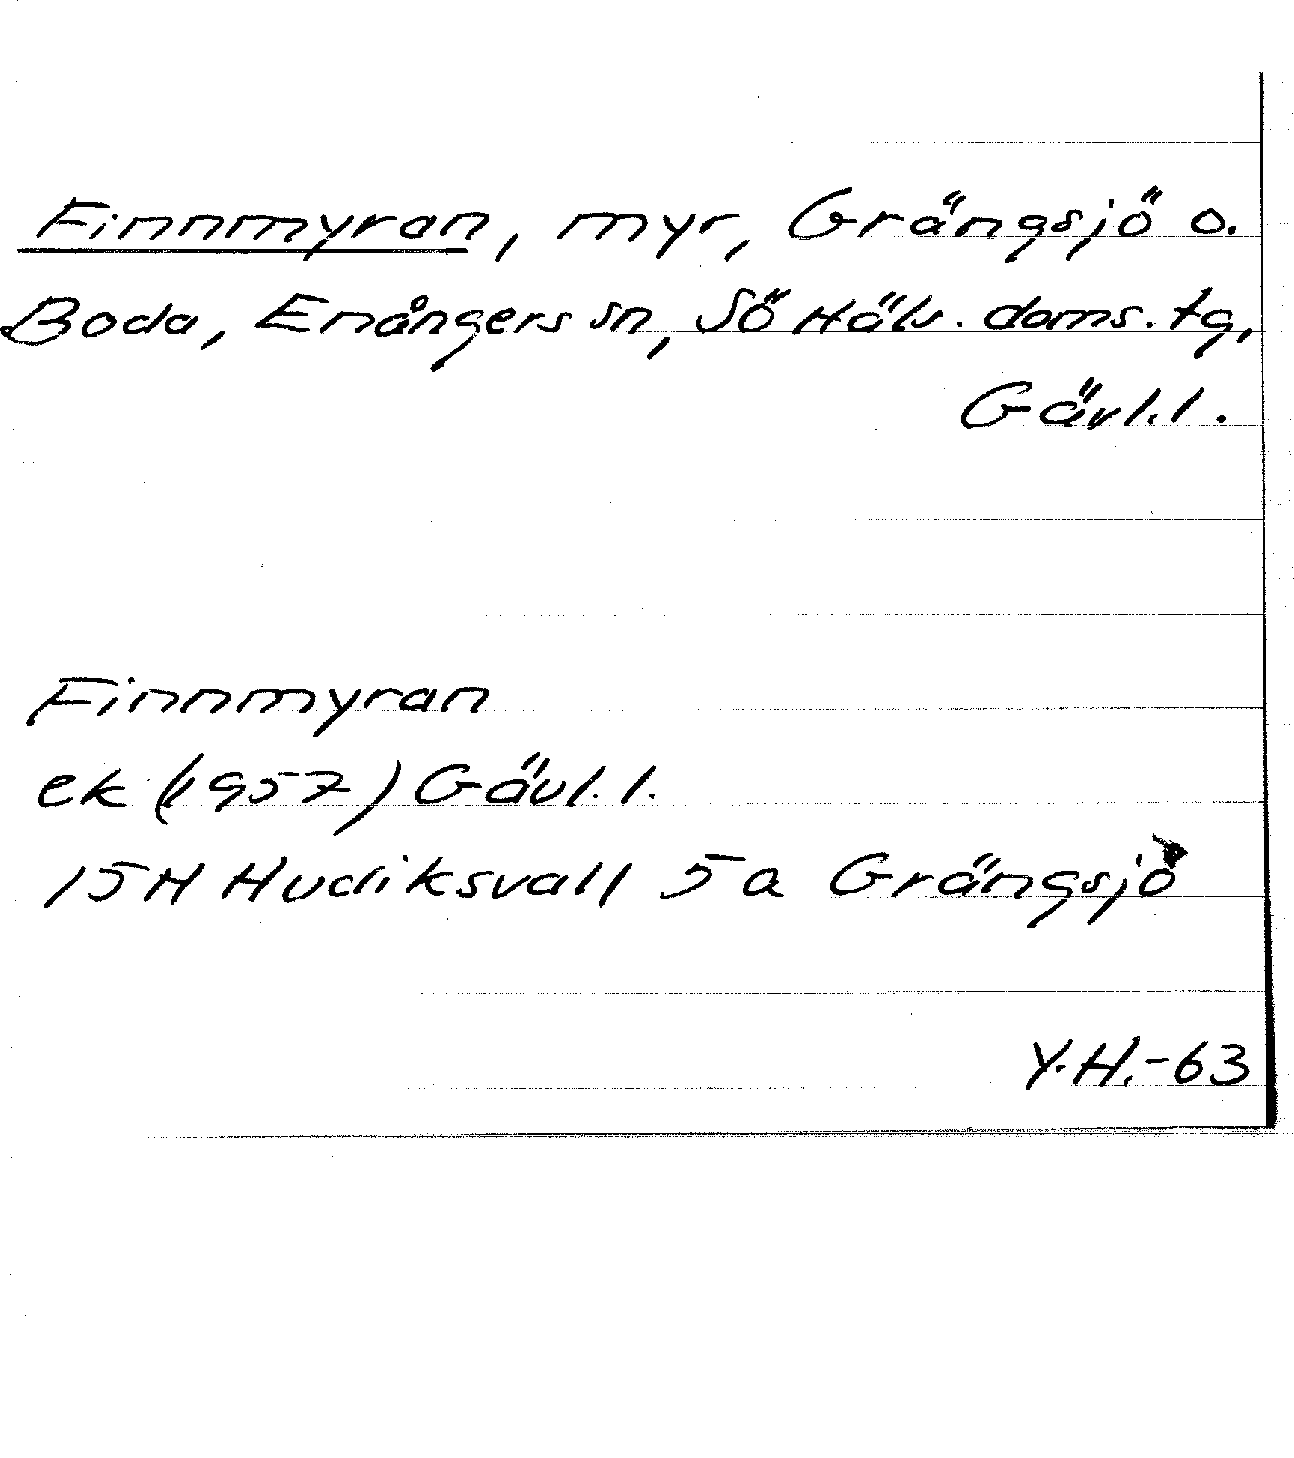 Finnmyran, myr, Grängsjö o.
Boda, Enångers sn, Sö Häls. doms. tg,
Gävl. l.
Finnmyran
ek (1957) Gävl. l.
15H Hudiksvall 5a Grängsjö
Y.H.-63